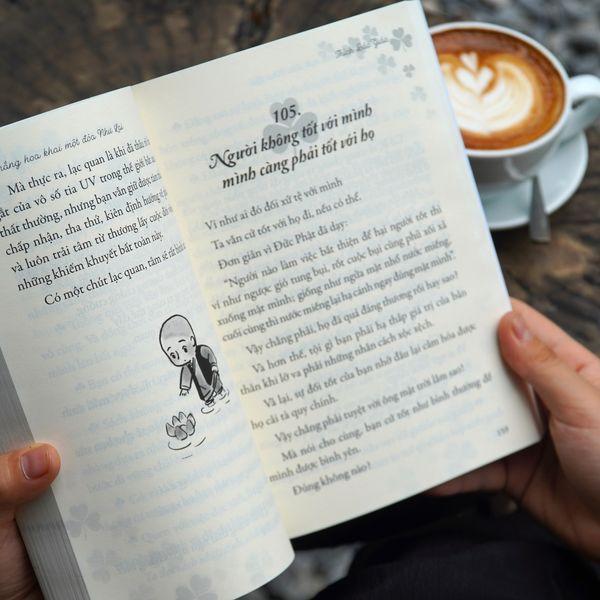 hoa khai một đóa Như Lai
Mà thực ra, lạc quan là khi đã
của vô số tia UV trong thế giới
thất thường, nhưng bạn vẫn giữ được
chấp nhận, tha thứ, kiên định hướng về
và luôn trải tâm từ thương lấy cuộc đời
những khiếm khuyết bất toàn này.
Có một chút lạc quan, tâm sẽ rất
105.
Người không tốt với mình
mình càng phải tốt với họ
Ví như ai đó đối xử tệ với mình
Ta vẫn cứ tốt với họ đi, nếu có thể.
Đơn giản vì Đức Phật đã dạy:
"Người nào làm việc bất thiện để hại người tốt thì
ví như ngược gió tung bụi, rốt cuộc bụi cũng phủ xối xả
xuống mặt mình; giống như ngửa mặt nhổ nước miếng,
cuối cùng thì nước miếng lại hạ cánh ngay đúng mặt mình".
Vậy chẳng phải, họ đã quá đáng thương rồi hay sao?
Và hơn thế, tội gì bạn phải hạ thấp giá trị của bản
thân khi lỡ va phải những nhân cách xộc xệch.
Vả lại, sự đối tốt của bạn nhỡ đâu lại cảm hóa được
họ cải tà quy chính.
Vậy chẳng phải tuyệt vời ông mặt trời lắm sao!
Mà nói cho cùng, bạn cứ tốt như bình thường để
mình được bình yên.
Đúng không nào?